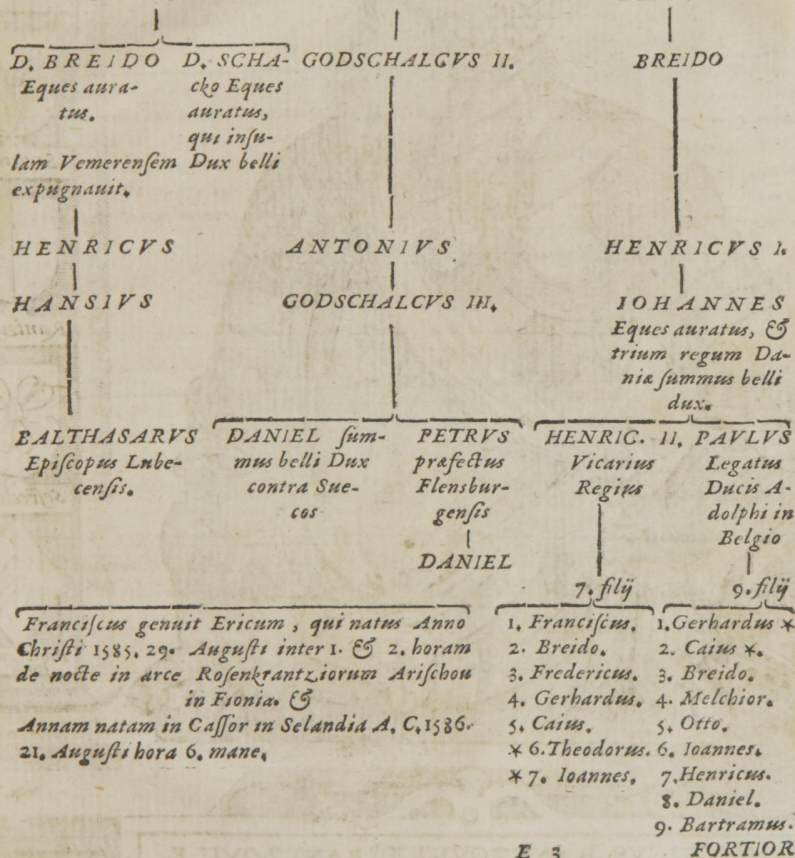 D. BREIDO
Eques aura-
tus.
D. SCHA-
cko Eques
auratus,
qui insu-
lam Vemerensem Dux belli
expugnauit.
GODSCHALCVS II.
BREIDO
HENRICVS
ANTONIVS
HENRICVS I.
HANSIVS
GODSCHALCVS III.
IOHANNES
Eques auratus, &
trium regum Da-
niæ summus belli
dux.
BALTHASARVS
Episcopus Lube-
censis.
DANIEL sum-
mus belli Dux
contra Sue-
cos
PETRVS
præfectus
Flensbur-
gensis
DANIEL
HENRIC. II.
Vicarius
Regius
7. filij
PAVLVS
Legatus
Ducis A-
dolphi in
Belgio
9. filij
Franciscus genuit Ericum, qui natus Anno
Christi 1585. 29. Augusti inter 1. & 2. horam
de nocte in arce Rosenkrantziorum Arischou
in Fionia. &
Annam natam in Cassor in Selandia A. C. 1586.
21. Augusti hora 6. mane.
1. Franciscus.
2. Breido.
3. Fredericus.
4. Gerhardus.
5. Caius.
* 6. Theodorus.
* 7. Ioannes.
1. Gerhardus *
2. Caius *.
3. Breido.
4. Melchior.
5. Otto.
6. Ioannes.
7. Henricus.
8. Daniel.
9. Bartramus.
E 3
FORTIOR